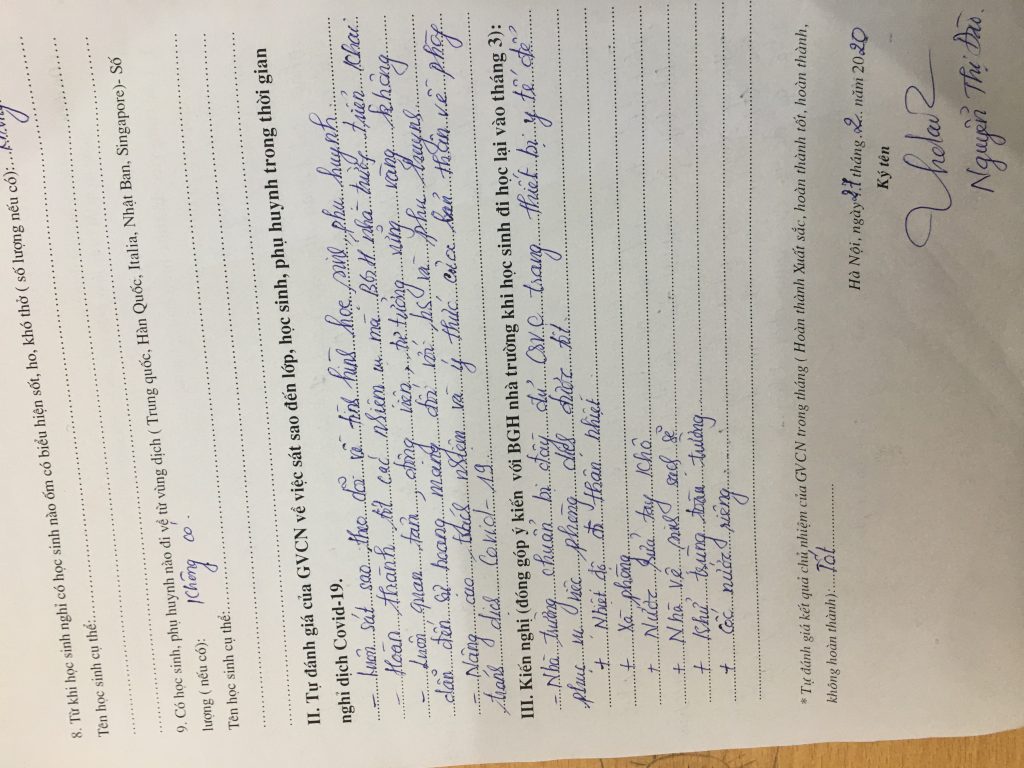 8. Từ khi học sinh nghỉ có học sinh nào ốm có biểu hiện sốt, ho, khó thở ( số lượng nếu có):... không
Tên học sinh cụ thể:
9. Có học sinh, phụ huynh nào đi về từ vùng dịch ( Trung quốc, Hàn Quốc, Italia, Nhật Ban, Singapore)- Số
lượng ( nếu có): không có.
Tên học sinh cụ thể:
II. Tự đánh giá của GVCN về việc sát sao đến lớp, học sinh, phụ huynh trong thời gian
nghỉ dịch Covid-19.
- Luôn sát sao theo dõi về tình hình học sinh, phụ huynh
- Hoàn thành tốt các nhiệm vụ mà BGH nhà trường triển khai
- Luôn quan tâm, động viên, tư tưởng vững vàng không
dẫn đến sự hoang mang đối với hs và phụ huynh
- Nâng cao trách nhiệm và ý thức của bản thân về phòng
tránh dịch Coviot-19
III. Kiến nghị (đóng góp ý kiến với BGH nhà trường khi học sinh đi học lại vào tháng 3):
- Nhà trường chuẩn bị đầy đủ CSVC trang thiết bị y tế để
phục vụ việc phòng dịch được tốt
+ Nhiệt độ đo thân nhiệt
+ Xà phòng
+ Nước rửa tay khô
+ Nhà vệ sinh sạch sẽ
+ Khử trùng toàn trường
+ Cốc nước riêng
* Tự đánh giá kết quả chủ nhiệm của GVCN trong tháng ( Hoàn thành Xuất sắc, hoàn thành tốt, hoàn thành,
không hoàn thành):... Tốt
Hà Nội, ngày 27 tháng 2 năm 2020
Ký tên
Nguyễn Thị Đào.